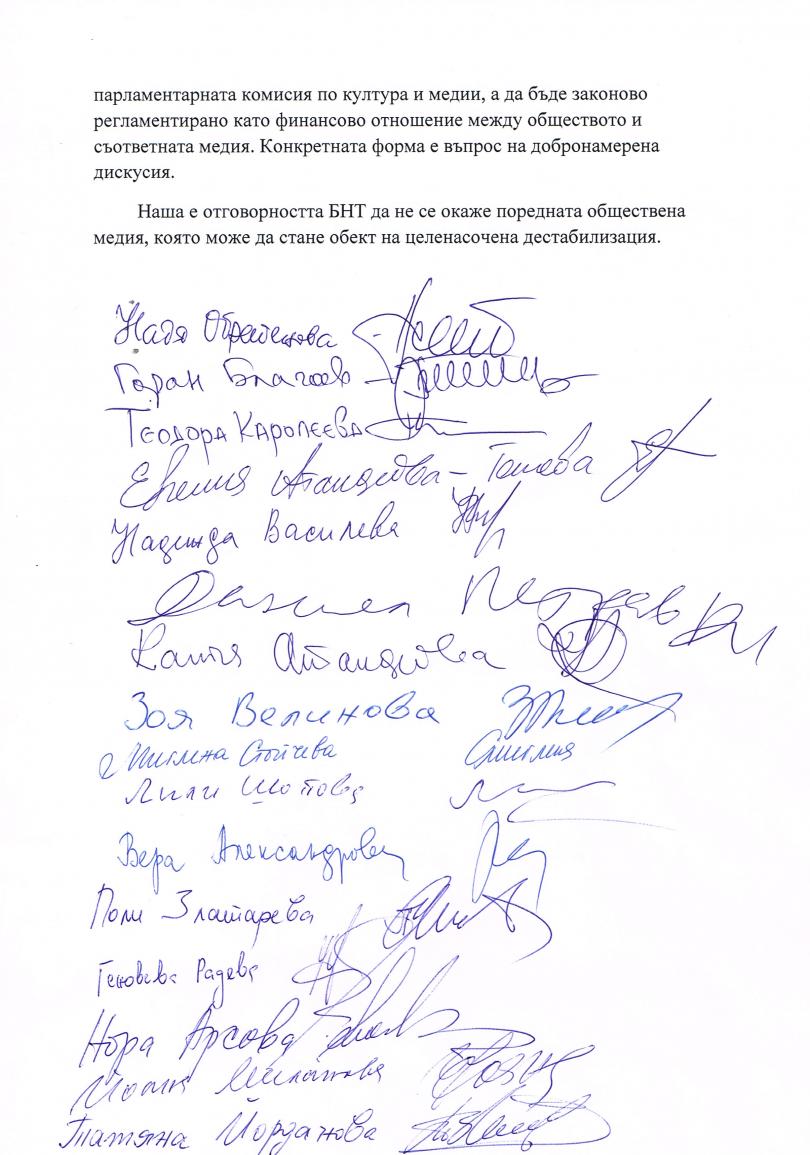 парламентарната комисия по култура и медии, а да бъде законово
регламентирано като финансово отношение между обществото и
съответната медия. Конкретната форма е въпрос на добронамерена
дискусия.
Наша е отговорността БНТ да не се окаже поредната обществена
медия, която може да стане обект на целенасочена дестабилизация.
Надя Обретенова
Горан Благоев
Теодора Каролеева
Евгения Атанасова-Тонева
Надежда Василева
Петров
Катя Атанасова
Зоя Велинова
Миглена Стойчева
Лили Шопова
Вера Александрова
Поли Златарева
Геновева Радева
Нора Арсова
Миланова
Татяна Йорданова